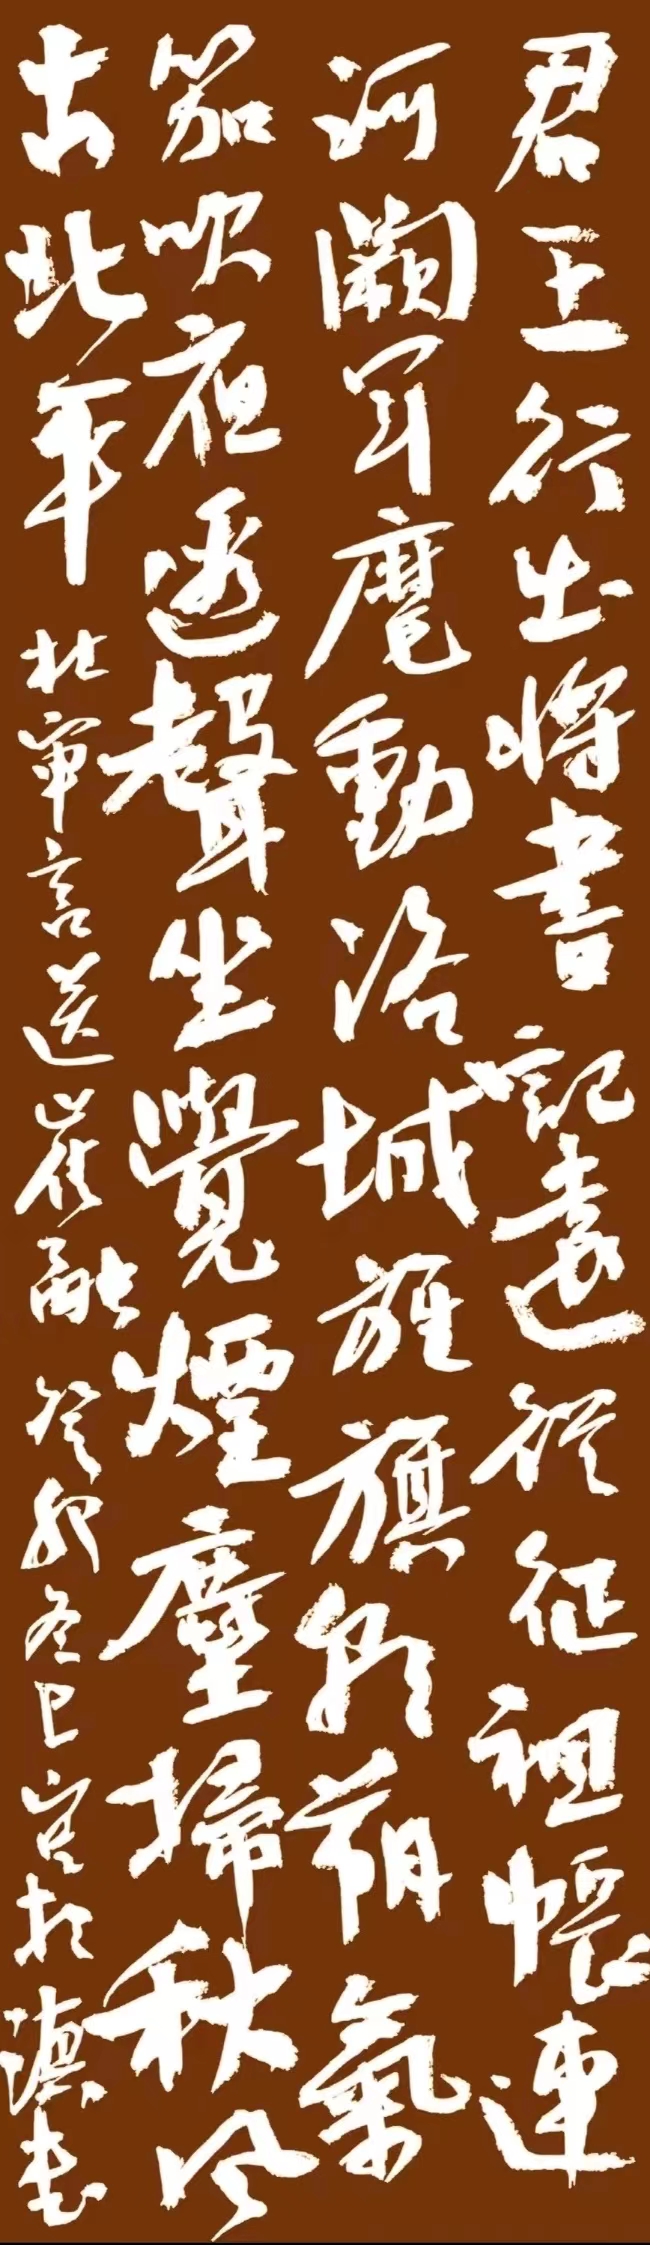 君王行出将書記遠從征祖帳連
河闕軍麾動洛城旌旗朝朔氣
笳吹夜邊聲坐覺煙塵掃秋風
古北年 審言送崔融 癸卯冬巳宮於滇書